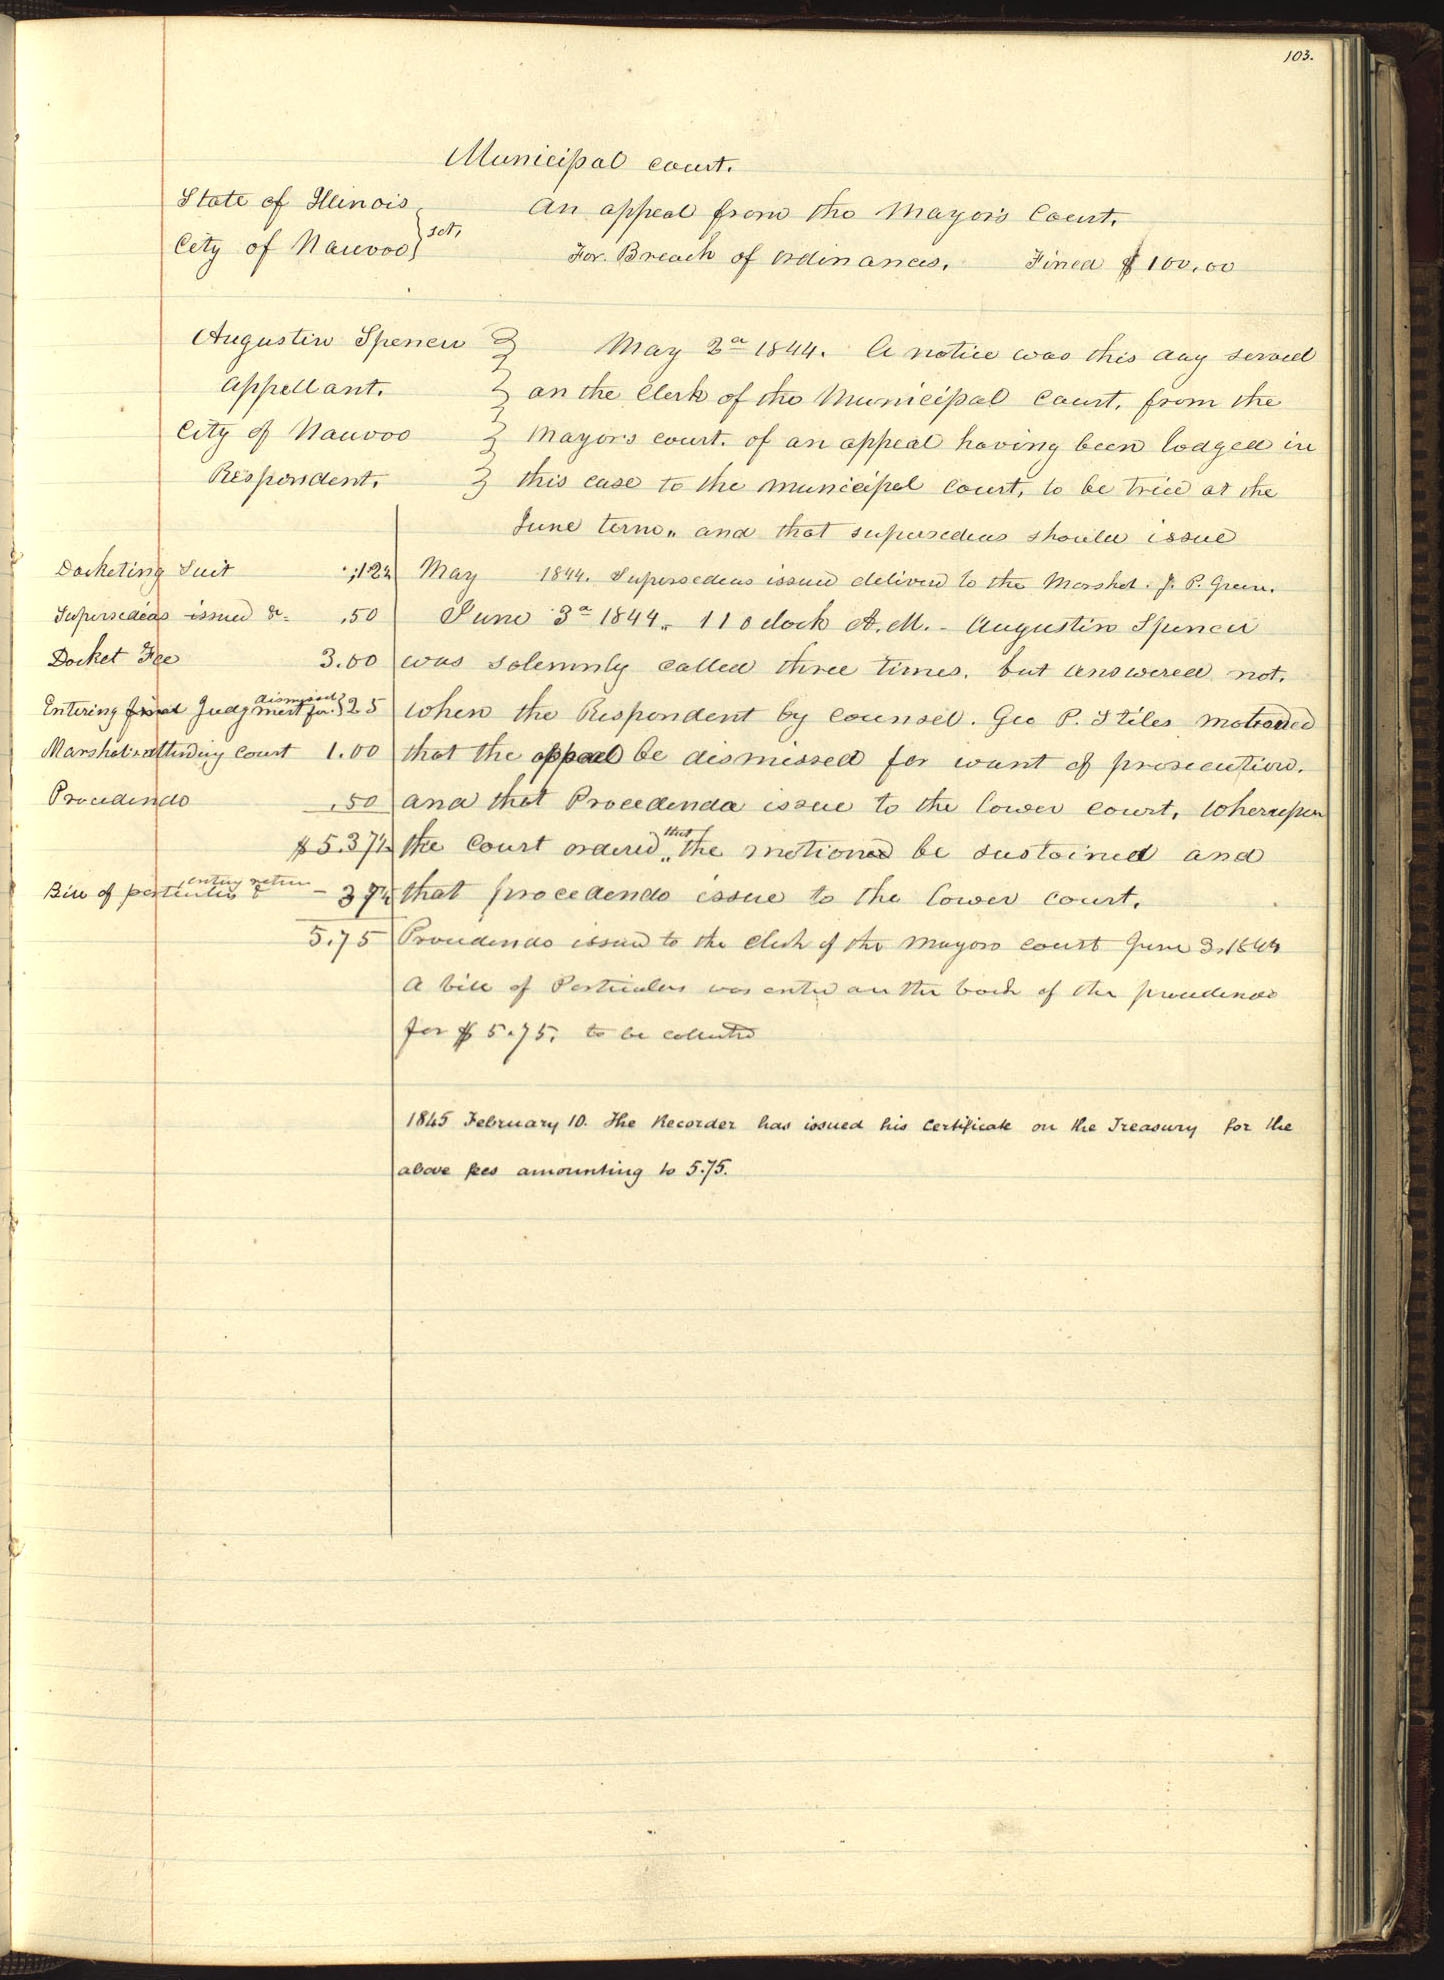 103.
Municipal court.
State of Illinois } sct,
City of Nauvoo
An appeal from the Mayor's Court.
For. Breach of ordinances. Fined $100.00
Augustin Spencer
appellant.
City of Nauvoo
Respondent.
May 2d 1844. A notice was this day served
on the Clerk of the Municipal Court, from the
Mayor's court. of an appeal having been lodged in
this case to the Municipal Court, to be tried at the
June term,, and that supersedeas should issue
Docketing Suit .12½
Supersedeas issued &c .50
Docket Fee 3.00
Entering final Judgment dismissed for } 25
Marshal attending Court 1.00
Procedendo .50
$5.37½
Bill of particulars entering return & – 37½
5.75
May 1844. Supersedeas issued delivered to the Marshal. J. P. Green.
June 3d 1844,, 11 o clock A.M. – Augustin Spencer
was solemnly called three times. but answered not.
when the Respondent by counsel. Geo P. Stiles motioned
that the appeal be dismissed for want of prosecution.
and that Procedendo issue to the lower court, Whereupon
the Court ordered,, that the motion be sustained and
that procedendo issue to the lower court.
Procedendo issued to the Clerk of the Mayors Court June 3. 1844
A bill of Particulars was entered on the back of the procedendo
for $5.75. to be collected
1845 February 10. The Recorder has issued his Certificate on the Treasury for the
above fees amounting to 5.75.